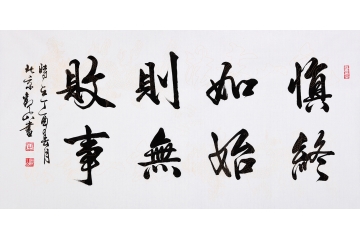 慎終
如始
則無
敗事
時在丁酉年春月
北京
書